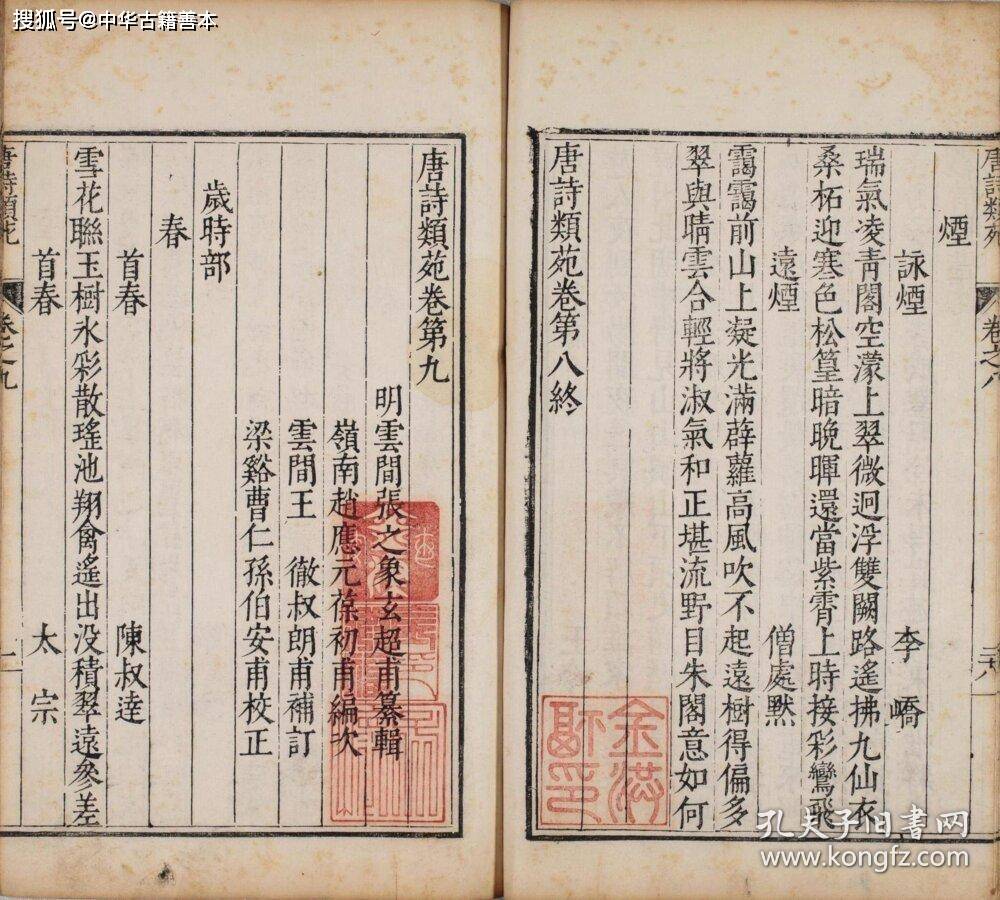 搜狐号@中华古籍善本
唐詩類苑
卷之八
煙
詠煙 李嶠
瑞氣凌青閣空濛上翠微迥浮雙闕路遙拂九仙衣
桑柘迎寒色松篁暗晚暉還當紫霄上時接彩鸞飛
遠煙 僧處黙
靄靄前山上凝光滿薜蘿高風吹不起遠樹得偏多
翠與晴雲合輕將淑氣和正堪流野目朱閣意如何
唐詩類苑卷第八終
唐詩類苑卷第九
明雲間張之象玄超甫纂輯
嶺南趙應元葆初甫編次
雲間王 徹叔朗甫補訂
梁谿曹仁孫伯安甫校正
歲時部
春
首春 陳叔達
雪花聯玉樹氷彩散瑤池翔禽遙出没積翠遠參差
首春 太宗
唐詩類苑
卷之九
一
孔夫子旧書网
www.kongfz.com